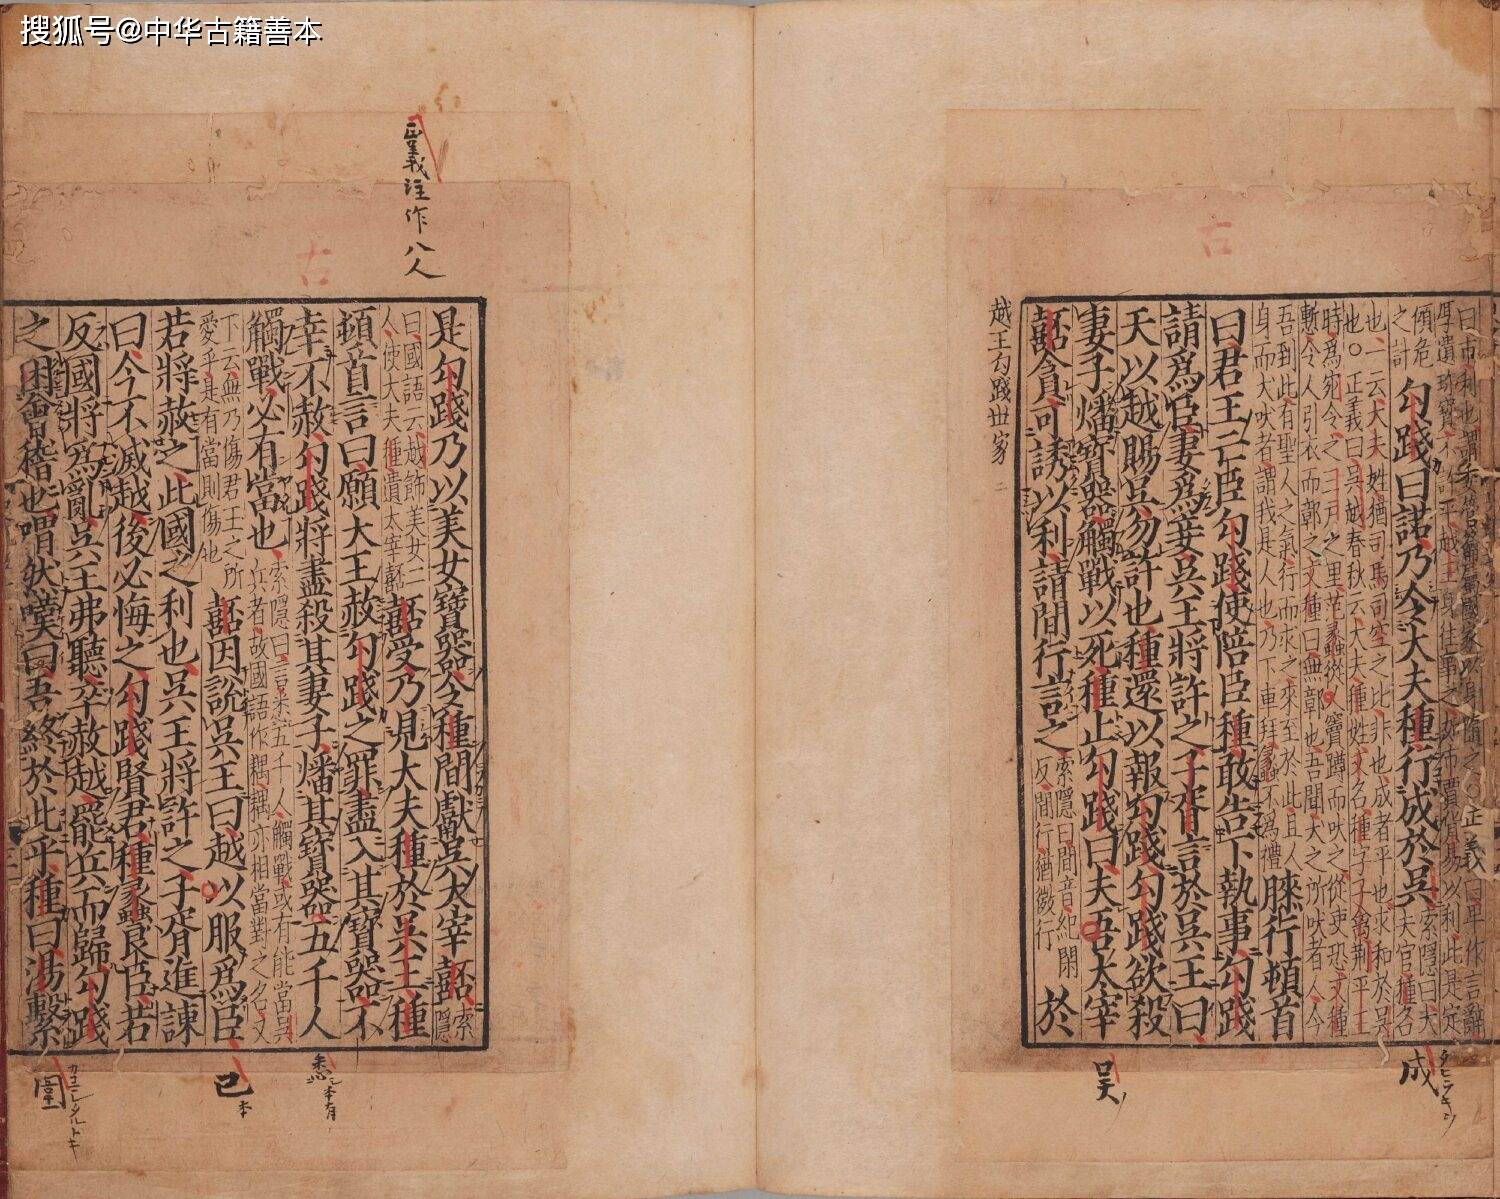 搜狐号@中华古籍善本
古
厚遺珍寶不
傾危
之計
勾踐曰諾乃令大夫種行成於吳
索隱曰大夫官種名
也一云大夫姓猶司馬司空之比非也成者平也求和於吳
也○正義曰吳越春秋云大夫種姓文名種子子禽荊平王
時爲宛令之三戶之里范蠡從犬竇蹲而吠之從吏恐文種
慙令人引衣而鄣之文種曰無鄣也吾聞犬之所吠者人今
吾到此有聖人之氣行而求之來至於此且人
身而犬吠者謂我是人也乃下車拜蠡不爲禮
膝行頓首
曰君王亡臣勾踐使陪臣種敢告下執事勾踐
請爲臣妻爲妾吳王將許之子胥言於吳王曰
天以越賜吳勿許也種還以報勾踐勾踐欲殺
妻子燔寶器觸戰以死種止勾踐曰夫吾太宰
嚭貪可誘以利請間行言之
索隱曰間音紀閑
反間行猶微行
於
越王勾踐世家
二
成
吳
正義注作八人
古
是勾踐乃以美女寶器令種間獻吳太宰嚭
索隱
曰國語云越飾美女二
人使大夫種遺太宰嚭
嚭受乃見大夫種於吳王種
頓首言曰願大王赦勾踐之罪盡入其寶器不
幸不赦勾踐將盡殺其妻子燔其寶器五千人
觸戰必有當也
索隱曰言悉五千人觸戰或有能當吳
兵者故國語作耦耦亦相當對之名又
下云無乃傷君王之所
愛乎是有當則傷也
嚭因說吳王曰越以服爲臣
若將赦之此國之利也吳王將許之子胥進諫
曰今不滅越後必悔之勾踐賢君種蠡良臣若
反國將爲亂吳王弗聽卒赦越罷兵而歸勾踐
之困會稽也喟然嘆曰吾終於此乎種曰湯繫
悉本有
已本
圍